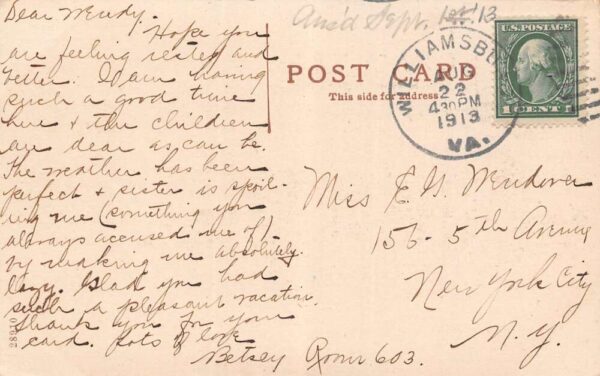 Ans'd Sept. 1st '13
Dear Wendy.
Hope you
are feeling rested and
better. I am having
such a good time
here & the children
are dear as can be.
The weather has been
perfect & sister is spoil-
ing me (something you
always accused me of)
by making me absolutely
lazy. Glad you had
such a pleasant vacation.
Thank you for your
card. Lots of love
Betsey
POST CARD
This side for address
WILLIAMSBU
AUG
22
430PM
1913
VA.
U.S. POSTAGE
1 CENT 1
Miss E. G. Wendover
156-5th Avenue
New York City
N.Y.
Room 603.
28910